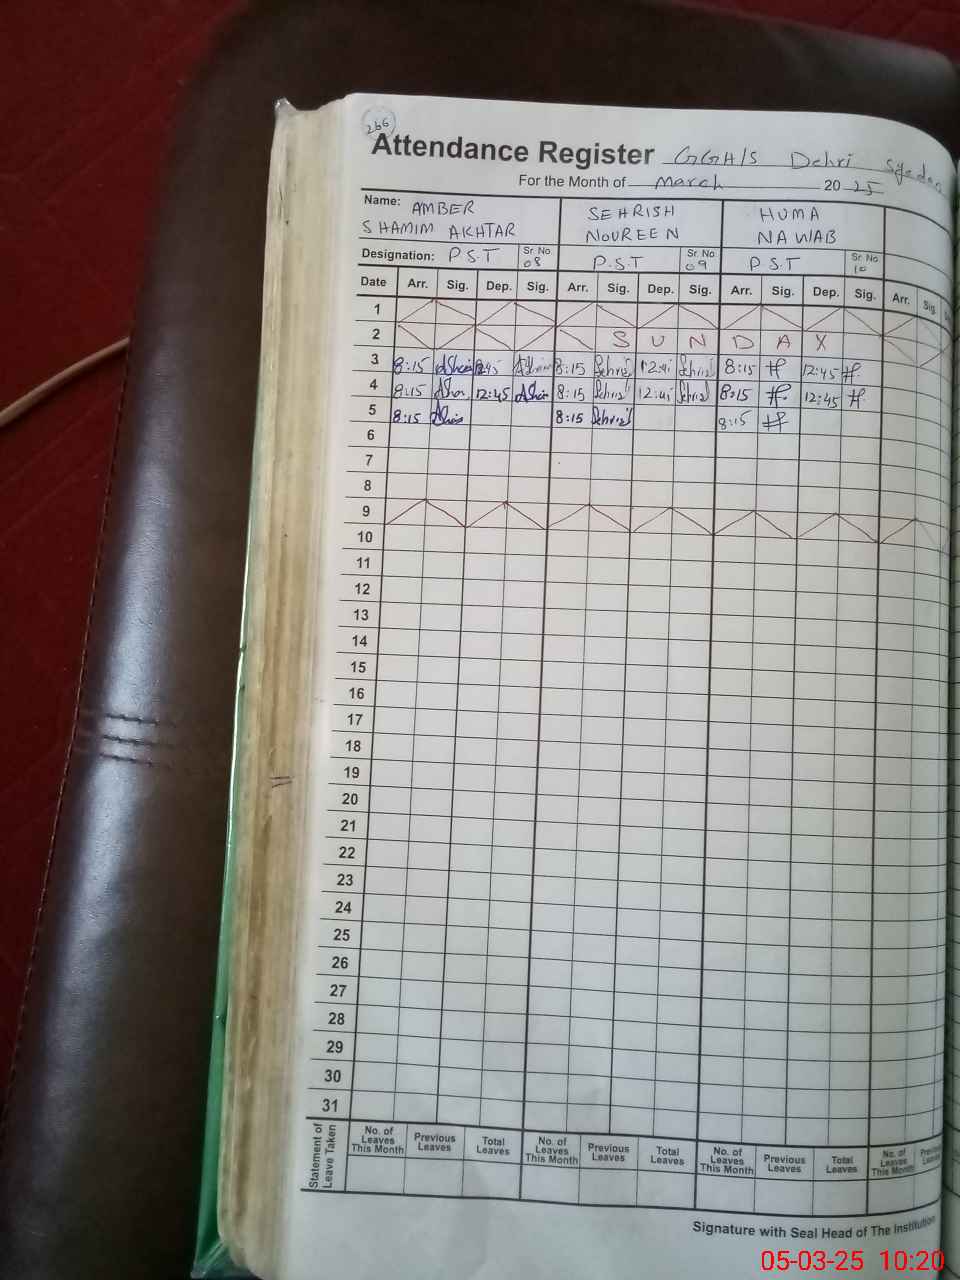 266
Attendance Register GGH/S Dehri Syedan
For the Month of March 2025
Name: AMBER SHAMIM AKHTAR SEHRISH NOUREEN HUMA NAWAB
Designation: P.S.T Sr. No 08 P.S.T Sr. No 09 P.S.T Sr. No 10
Date Arr. Sig. Dep. Sig. Arr. Sig. Dep. Sig. Arr. Sig. Dep. Sig. Arr. Sig.
1
2 S U N D A Y
3 8:15 8:15 8:15 12:45
4 8:15 12:45 8:15 8:15 12:45
5 8:15 8:15 8:15
6
7
8
9
10
11
12
13
14
15
16
17
18
19
20
21
22
23
24
25
26
27
28
29
30
31
Statement of Leave Taken No. of Leaves This Month Previous Leaves Total Leaves No. of Leaves This Month Previous Leaves Total Leaves No. of Leaves This Month Previous Leaves Total Leaves No. of Leaves This Month
Signature with Seal Head of The Institution
05-03-25 10:20